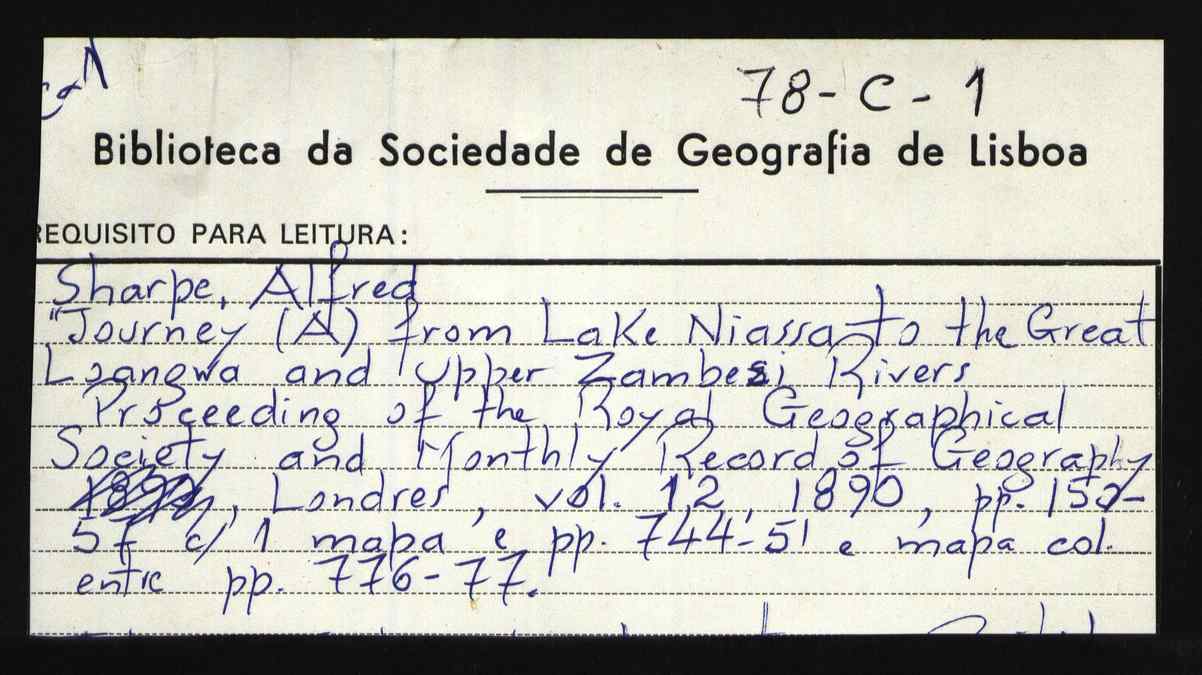 78-C-1
Biblioteca da Sociedade de Geografia de Lisboa
REQUISITO PARA LEITURA:
Sharpe, Alfred
"Journey (A) from Lake Niassa to the Great
Loangwa and Upper Zambesi Rivers
Proceeding of the Royal Geographical
Society and Monthly Record of Geography
, Londres, vol. 12, 1890, pp. 150-
57 c/ 1 mapa e pp. 744-51 e mapa col.
entre pp. 776-77.